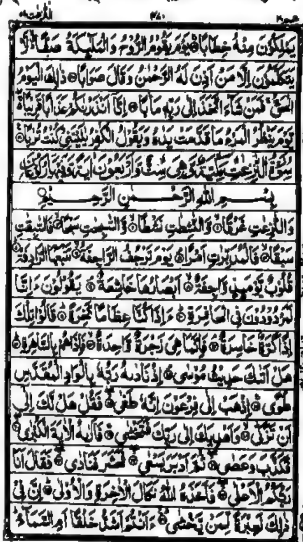 النزعت ۷۹
عم ۳۰
يملكون منه خطابا يوم يقوم الروح والملئكة صفا لا
يتكلمون الا من اذن له الرحمن وقال صوابا ذلك اليوم
الحق فمن شاء اتخذ الى ربه مابا انا انذرنكم عذابا قريبا
يوم ينظر المرء ما قدمت يده ويقول الكفر يليتني كنت تربا
سورة النزعت مكية وهي ست واربعون اية وفيها ركوعان
بسم الله الرحمن الرحيم
والنزعت غرقا والنشطت نشطا والسبحت سبحا فالسبقت
سبقا فالمدبرت امرا يوم ترجف الراجفة تتبعها الرادفة
قلوب يومئذ واجفة ابصارها خاشعة يقولون ءانا
لمردودون في الحافرة ءاذا كنا عظاما نخرة قالوا تلك
اذا كرة خاسرة فانما هي زجرة واحدة فاذا هم بالساهرة
هل اتىك حديث موسى اذ نادىه ربه بالواد المقدس
طوى اذهب الى فرعون انه طغى فقل هل لك الى
ان تزكى واهديك الى ربك فتخشى فارىه الاية الكبرى
فكذب وعصى ثم ادبر يسعى فحشر فنادى فقال انا
ربكم الاعلى فاخذه الله نكال الاخرة والاولى ان في
ذلك لعبرة لمن يخشى ءانتم اشد خلقا ام السماء